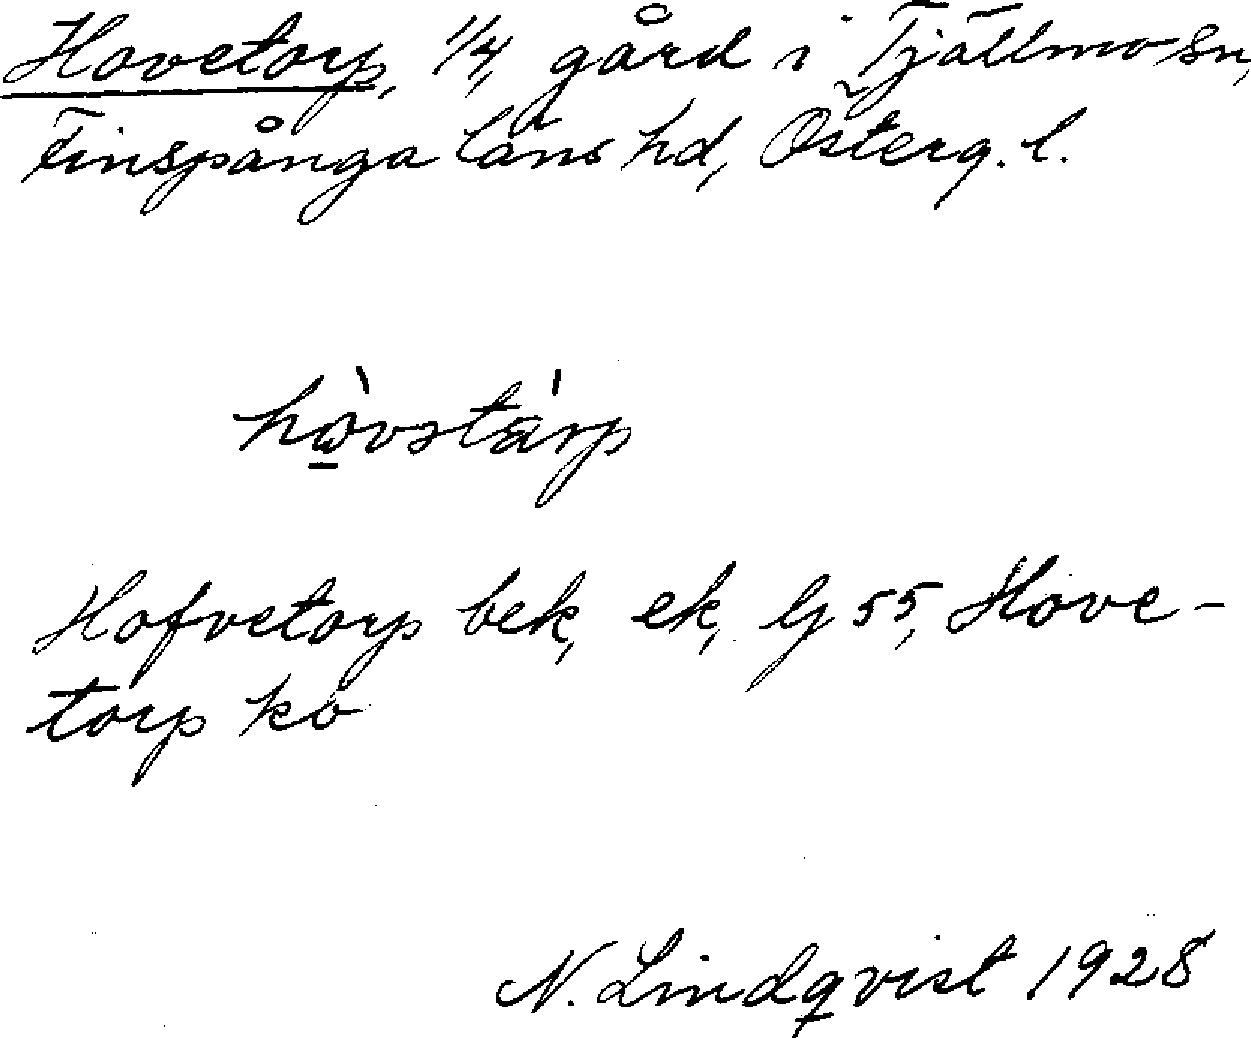 Hovetorp, 1/4, gård i Tjällmo sn,
Finspånga läns hd, Österg. l.
hòvstárp
Hofvetorp bek, ek, lj 55, Hove-
torp ko
N. Lindqvist 1928